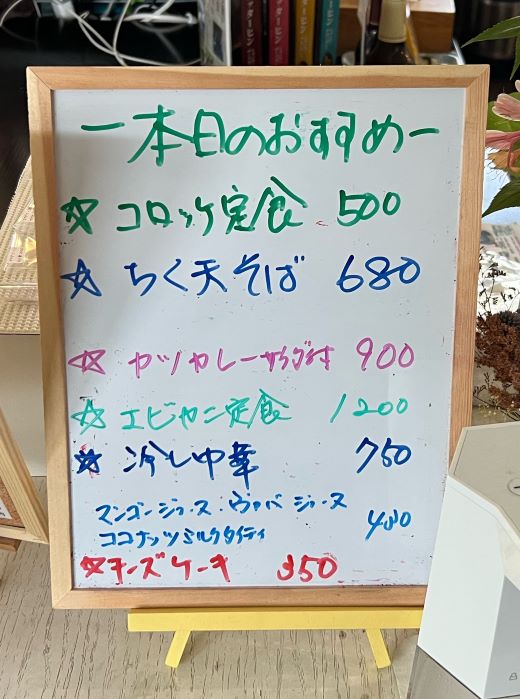 ー本日のおすすめー
☆コロッケ定食 500
☆ちく天そば 680
☆カツカレーサラダ付 900
☆エビカニ定食 1200
☆冷し中華 750
マンゴージュース・ジュース
ココナッツミルク 400
☆チーズケーキ 350